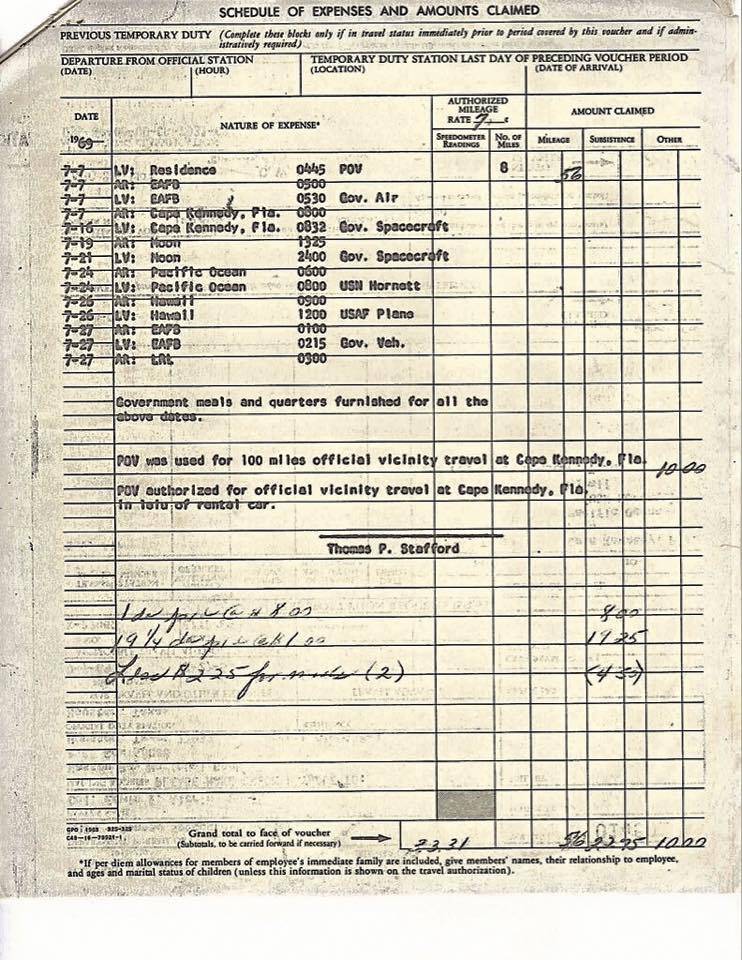 SCHEDULE OF EXPENSES AND AMOUNTS CLAIMED
PREVIOUS TEMPORARY DUTY (Complete these blocks only if in travel status immediately prior to period covered by this voucher and if admin-
istratively required)
DEPARTURE FROM OFFICIAL STATION
(DATE) (HOUR)
TEMPORARY DUTY STATION LAST DAY OF PRECEDING VOUCHER PERIOD
(LOCATION) (DATE OF ARRIVAL)
DATE
1969
NATURE OF EXPENSE*
AUTHORIZED
MILEAGE
RATE 7 c
AMOUNT CLAIMED
SPEEDOMETER
READINGS
NO. OF
MILES
MILEAGE SUBSISTENCE OTHER
7-7 LV: Residence 0445 POV 8 56
7-7 AR: EAFB 0500
7-7 LV: EAFB 0530 Gov. Air
7-7 AR: Cape Kennedy, Fla. 0800
7-16 LV: Cape Kennedy, Fla. 0832 Gov. Spacecraft
7-19 AR: Moon 1325
7-21 LV: Moon 2400 Gov. Spacecraft
7-24 AR: Pacific Ocean 0600
7-24 LV: Pacific Ocean 0800 USN Hornett
7-26 AR: Hawaii 0900
7-26 LV: Hawaii 1200 USAF Plane
7-27 AR: EAFB 0100
7-27 LV: EAFB 0215 Gov. Veh.
7-27 AR: LRL 0300
Government meals and quarters furnished for all the
above dates.
POV was used for 100 miles official vicinity travel at Cape Kennedy, Fla. 10.00
POV authorized for official vicinity travel at Cape Kennedy, Fla.
in leiu of rental car.
Thomas P. Stafford
1 day @ $8.00 8.00
19 1/4 1.00 19.25
Less $2.25 for meals (2) (4.50)
Grand total to face of voucher
(Subtotals, to be carried forward if necessary)
33.31 56 22.75 10.00
*If per diem allowances for members of employee's immediate family are included, give members' names, their relationship to employee,
and ages and marital status of children (unless this information is shown on the travel authorization).